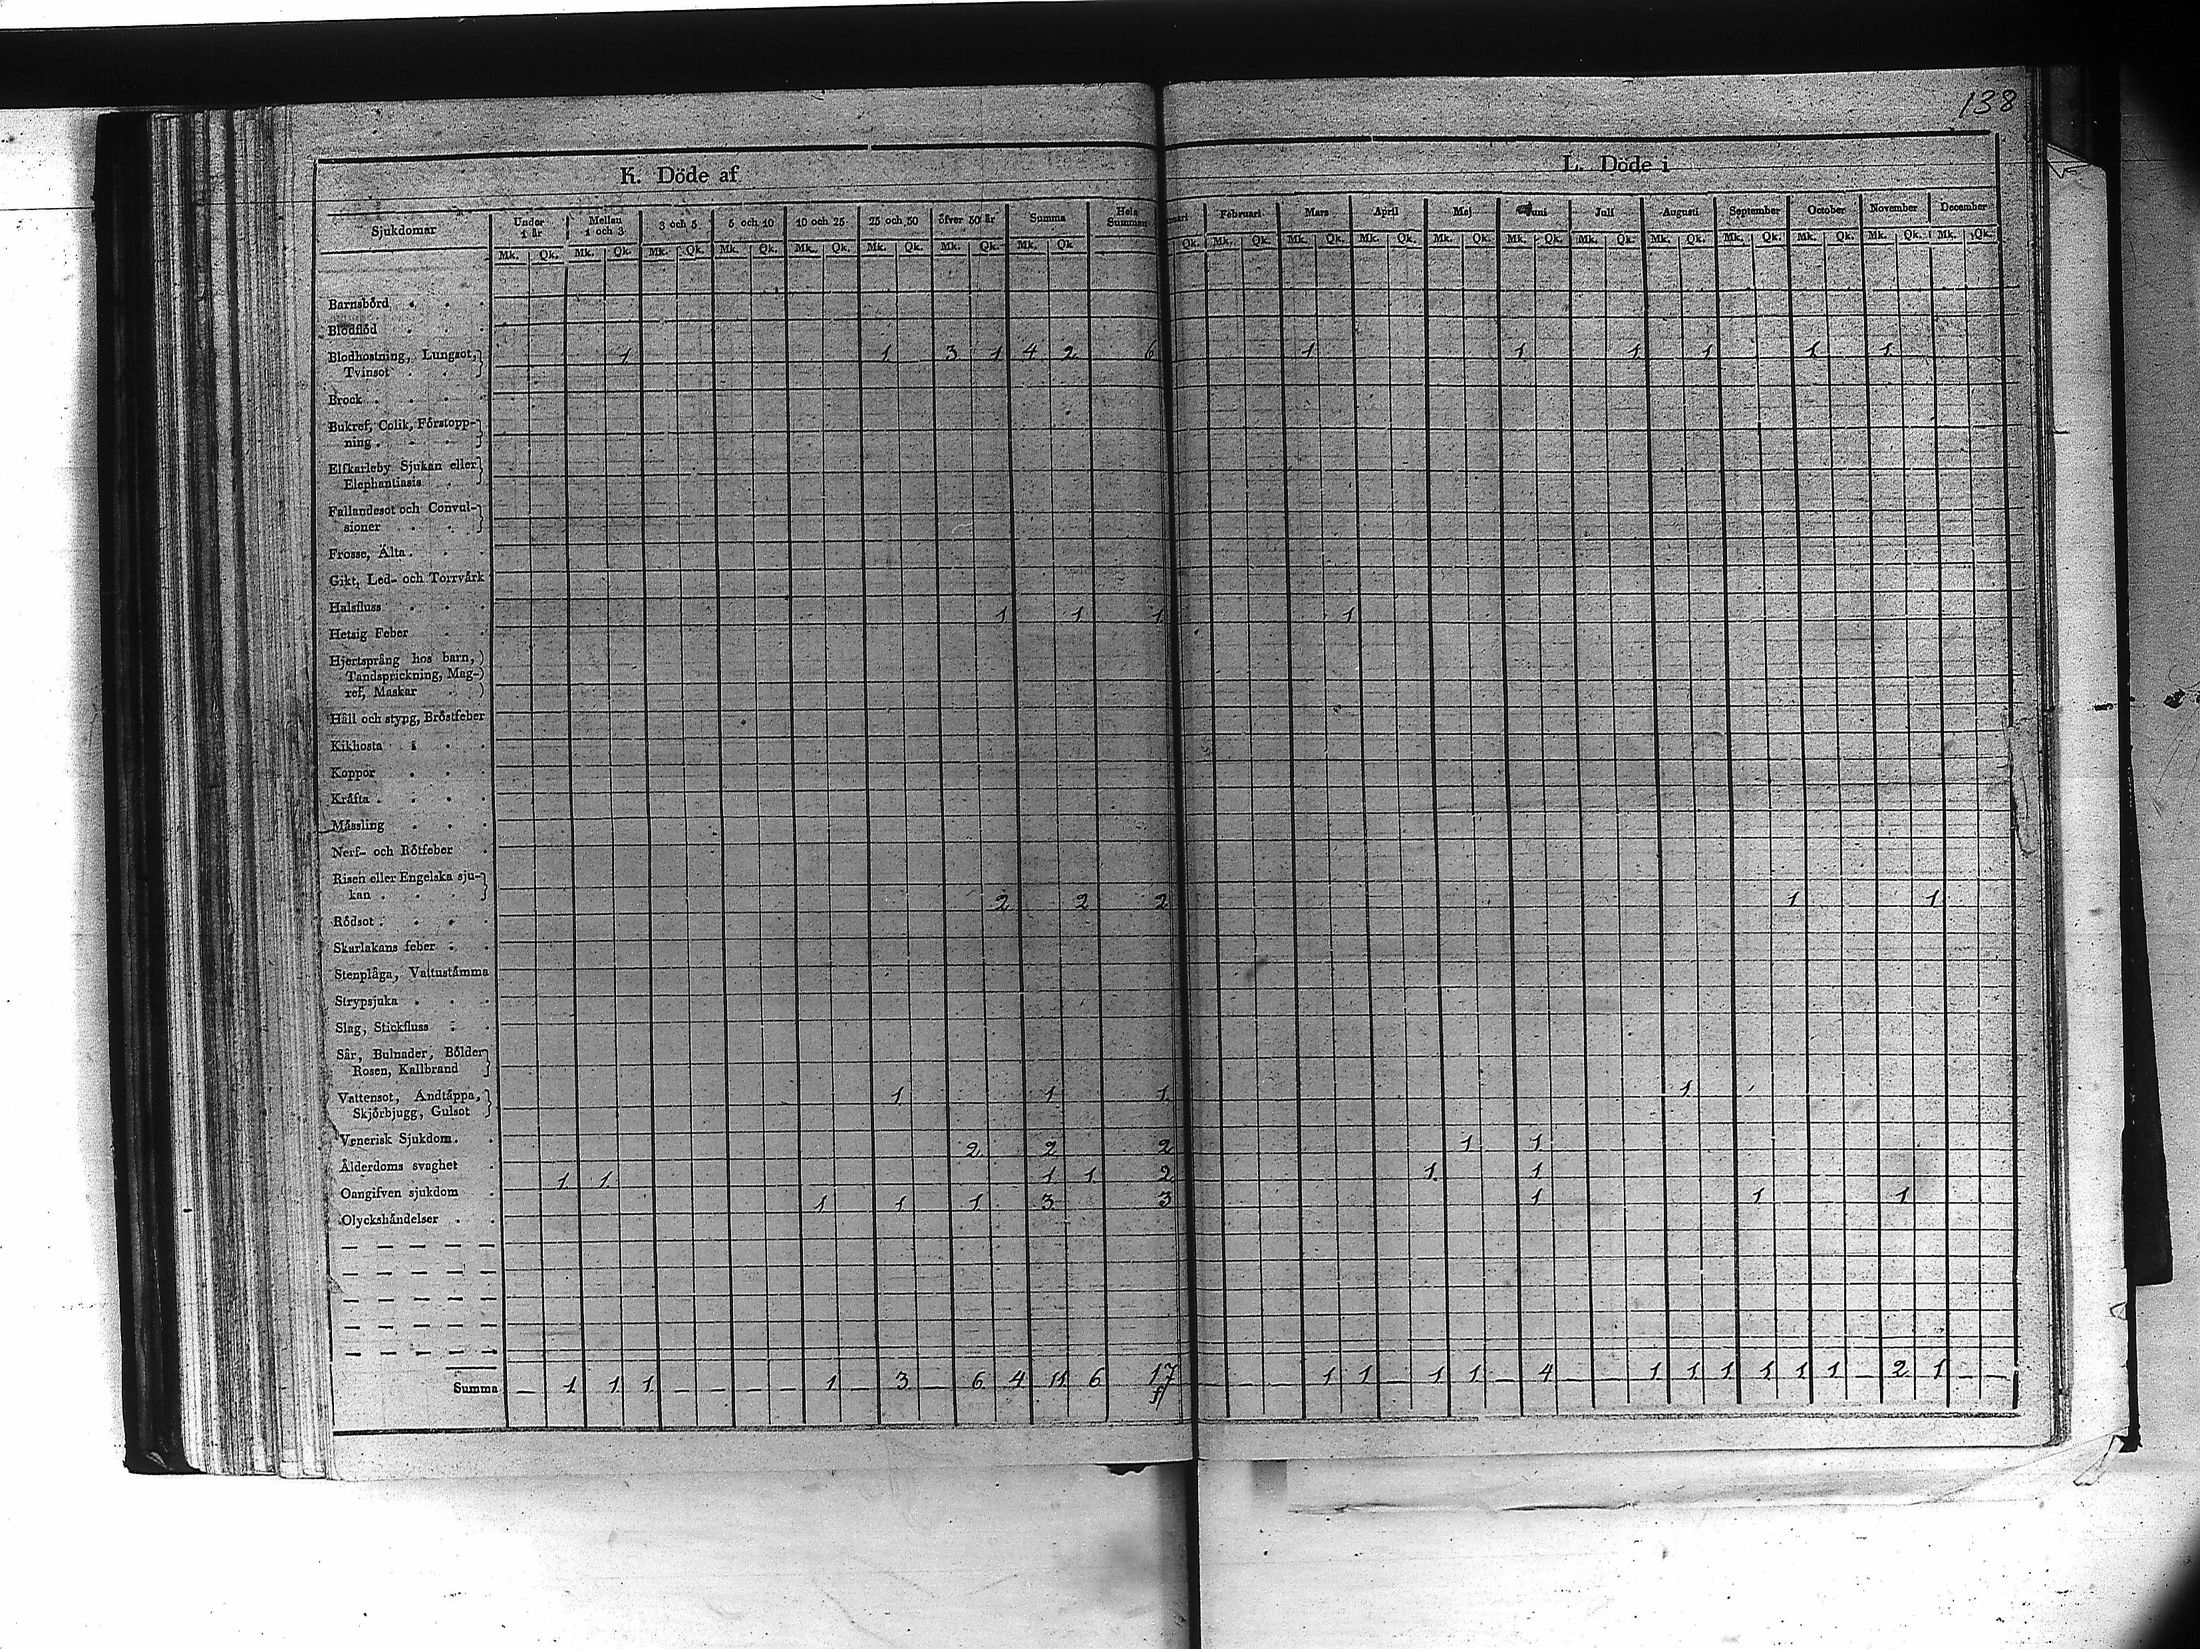 138
K. Döde af
L. Döde i
Sjukdomar | Under 1 år | Mellan 1 och 3 | 3 och 5 | 5 och 10 | 10 och 25 | 25 och 50 | öfver 50 år | Summa | Hela Summan
Februari | Mars | April | Maj | Juni | Juli | Augusti | September | October | November | December
Mk. Qk. Mk. Qk. Mk. Qk. Mk. Qk. Mk. Qk. Mk. Qk. Mk. Qk. Mk. Qk.
Qk. Mk. Qk. Mk. Qk. Mk. Qk. Mk. Qk. Mk. Qk. Mk. Qk. Mk. Qk. Mk. Qk. Mk. Qk. Mk. Qk. Mk. Qk.
Barnsbörd
Blodflöd
Blodhostning, Lungsot, 1 1 3 1 4 2 6 1 1 1 1 1 1
Tvinsot
Brock
Bukref, Colik, Förstopp-
ning
Elfkarleby Sjukan eller
Elephantiasis
Fallandesot och Convul-
sioner
Frosse, Älta
Gikt, Led- och Torrvärk
Halsfluss 1 1 1 1
Hetsig Feber
Hjertsprång hos barn,
Tandsprickning, Mag-
ref, Maskar
Håll och styng, Bröstfeber
Kikhosta
Koppor
Kräfta
Mässling
Nerf- och Rötfeber
Risen eller Engelska sju-
kan 2 2 2 1 1
Rödsot
Skarlakans feber
Stenplåga, Vattustämma
Strypsjuka
Slag, Stickfluss
Sår, Bulnader, Bölder
Rosen, Kallbrand
Vattensot, Andtäppa, 1 1 1 1
Skjörbjugg, Gulsot
Venerisk Sjukdom 2 2 2 1 1
Ålderdoms svaghet 1 1 1 1 2 1 1
Oangifven sjukdom 1 1 1 3 3 1 1 1
Olyckshändelser
Summa — 1 1 1 — — — — 1 — 3 — 6 4 11 6 17 — — — 1 1 — 1 1 — 4 — — 1 1 1 1 1 1 — 2 1 — —